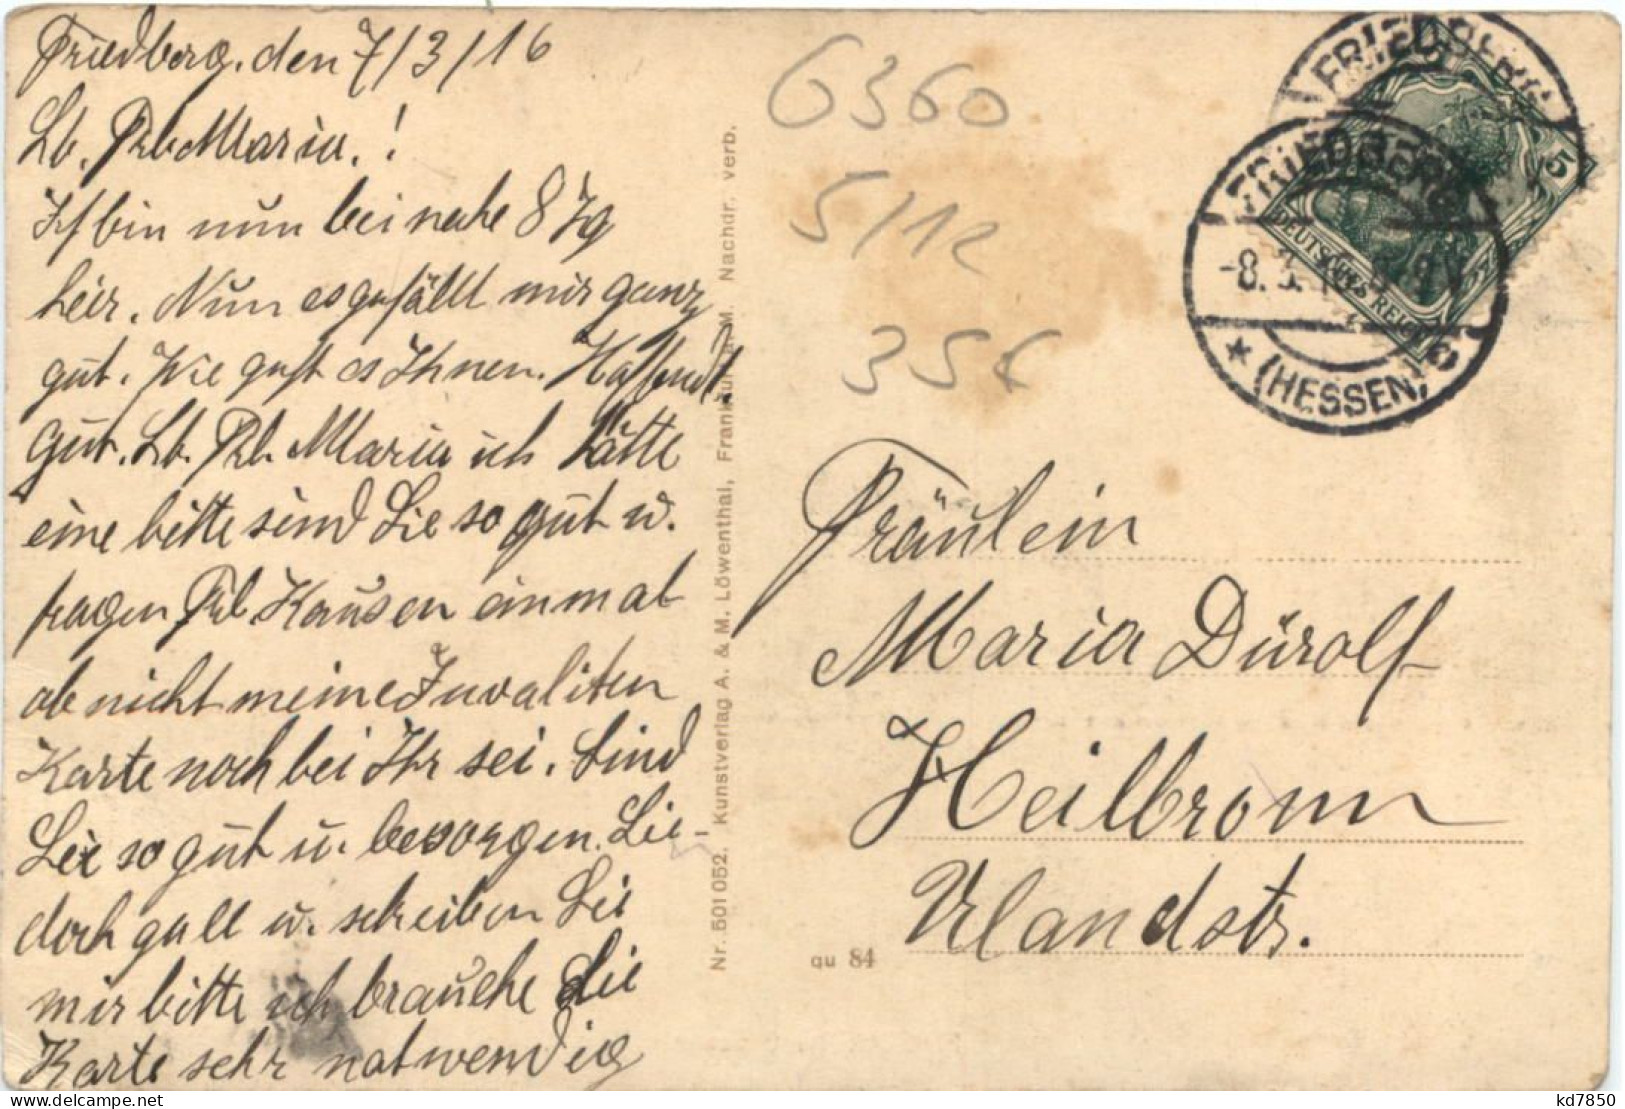 Friedberg, den 7/3/16
Lb. Frl. Maria.!
Ich bin nun bei nahe 8 Tg
hier. Nun es gefällt mir ganz
gut. Wie geht es Ihnen. Hoffendl.
gut. Lb. Frl. Maria ich hätte
eine bitte sind Sie so gut u.
fragen Frl. Kausen einmal
ob nicht meine Invaliten
Karte noch bei Ihr sei. Sind
Sie so gut u. besorgen. Sie
doch gall u. schreiben Sie
mir bitte ich brauche die
Karte sehr notwendig
Nr. 501 052. Kunstverlag A. & M. Löwenthal, Frankfurt a. M. Nachdr. verb.
6360
5/12
35x
FRIEDBERG
FRIEDBERG
-8. 3.
(HESSEN)
DEUTSCHES REICH
5
Fräulein
Maria Dürolf
Heilbronn
Ulandstr.
qu 84
kd7850